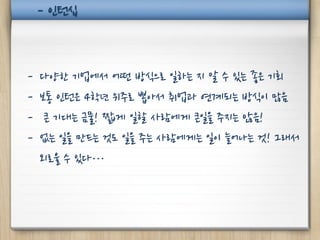 - 인턴십
- 다양한 기업에서 어떤 방식으로 일하는 지 알 수 있는 좋은 기회
- 보통 인턴은 4학년 위주로 뽑아서 취업과 연계되는 방식이 많음
- 큰 기대는 금물! 짧게 일할 사람에게 큰일을 주지는 않음!
- 없는 일을 만드는 것도 일을 주는 사람에게는 일이 늘어나는 것! 그래서
외로울 수 있다...